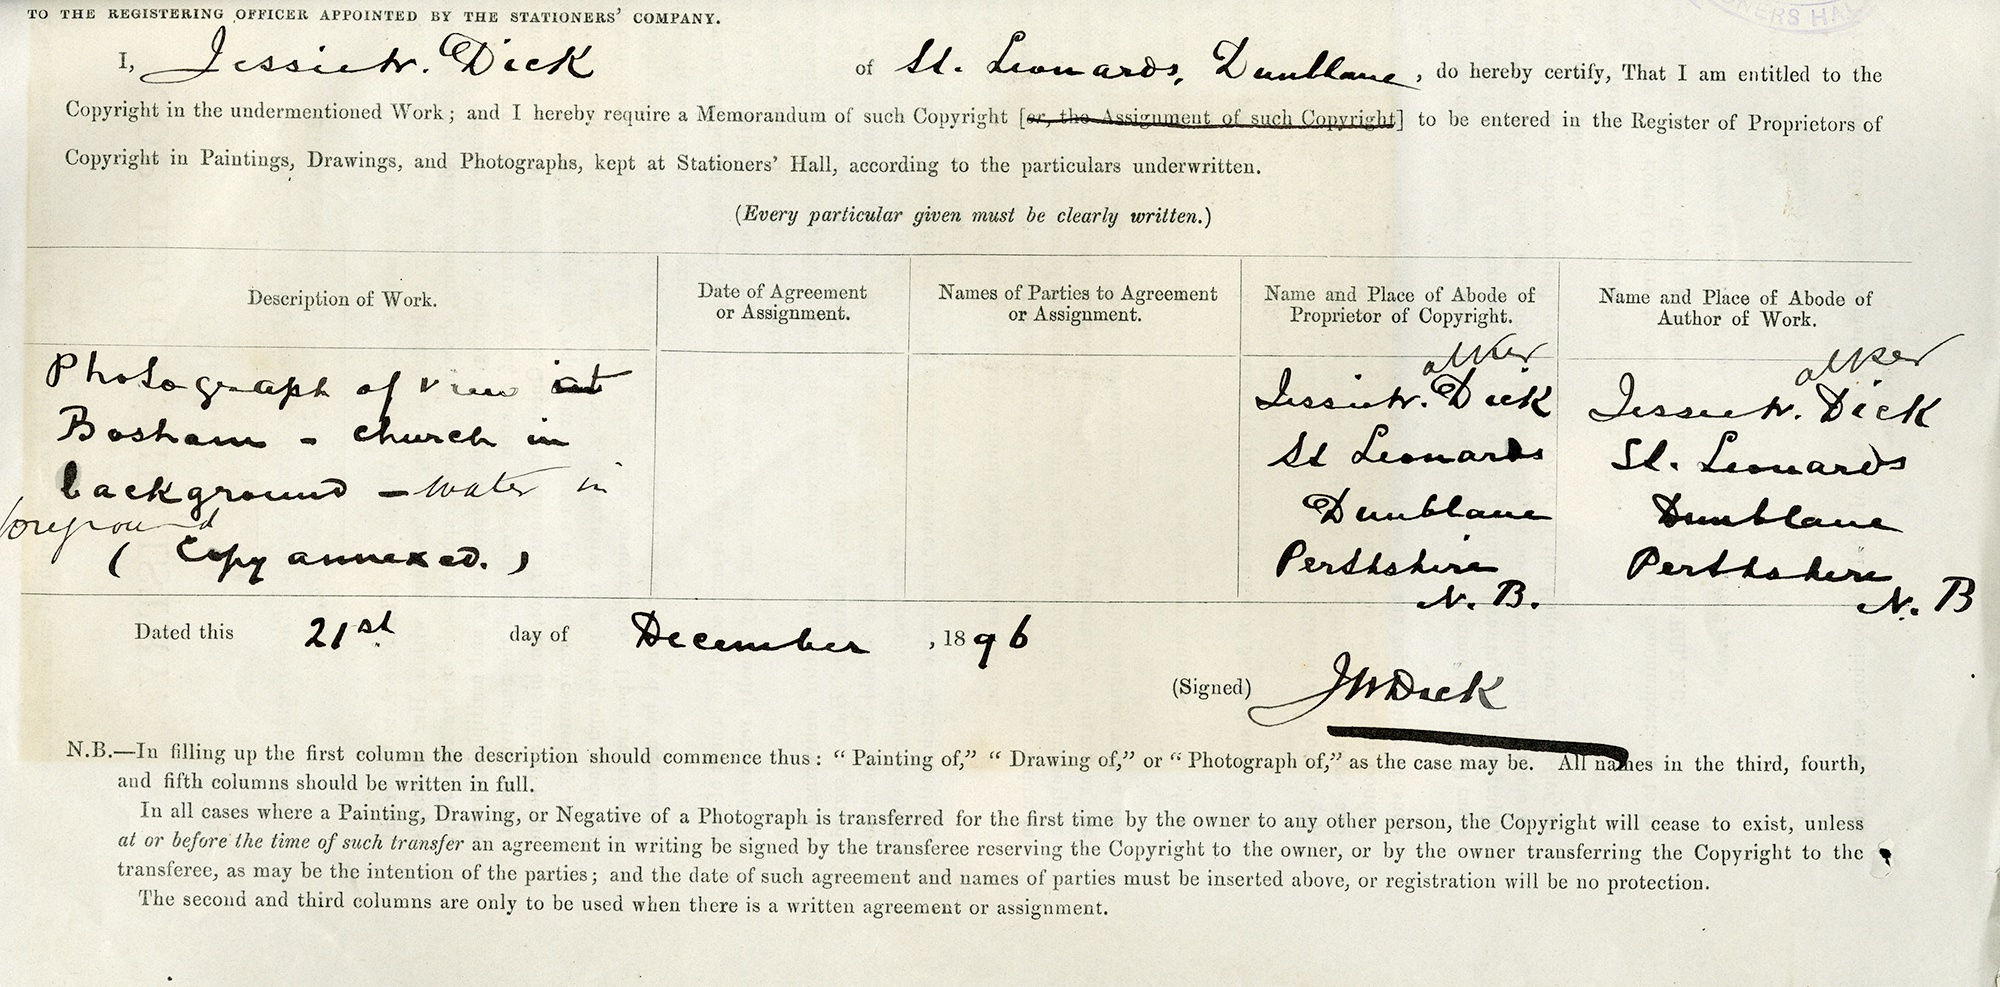 TO THE REGISTERING OFFICER APPOINTED BY THE STATIONERS' COMPANY.
ONERS HAL
I, Jessie W. Dick of St. Leonards, Dunblane, do hereby certify, That I am entitled to the
Copyright in the undermentioned Work; and I hereby require a Memorandum of such Copyright [or, the Assignment of such Copyright] to be entered in the Register of Proprietors of
Copyright in Paintings, Drawings, and Photographs, kept at Stationers' Hall, according to the particulars underwritten.
(Every particular given must be clearly written.)
Description of Work.
Date of Agreement
or Assignment.
Names of Parties to Agreement
or Assignment.
Name and Place of Abode of
Proprietor of Copyright.
Name and Place of Abode of
Author of Work.
Photograph of view at
Bosham - church in
background - water in
foreground
(Copy annexed.)
alker
Jessie W. Dick
St Leonards
Dunblane
Perthshire
N. B.
alker
Jessie W. Dick
St. Leonards
Dunblane
Perthshire
N. B
Dated this 21st day of December, 1896
(Signed) JWDick
N.B.—In filling up the first column the description should commence thus: “Painting of,” “Drawing of,” or “Photograph of,” as the case may be. All names in the third, fourth,
and fifth columns should be written in full.
In all cases where a Painting, Drawing, or Negative of a Photograph is transferred for the first time by the owner to any other person, the Copyright will cease to exist, unless
at or before the time of such transfer an agreement in writing be signed by the transferee reserving the Copyright to the owner, or by the owner transferring the Copyright to the
transferee, as may be the intention of the parties; and the date of such agreement and names of parties must be inserted above, or registration will be no protection.
The second and third columns are only to be used when there is a written agreement or assignment.